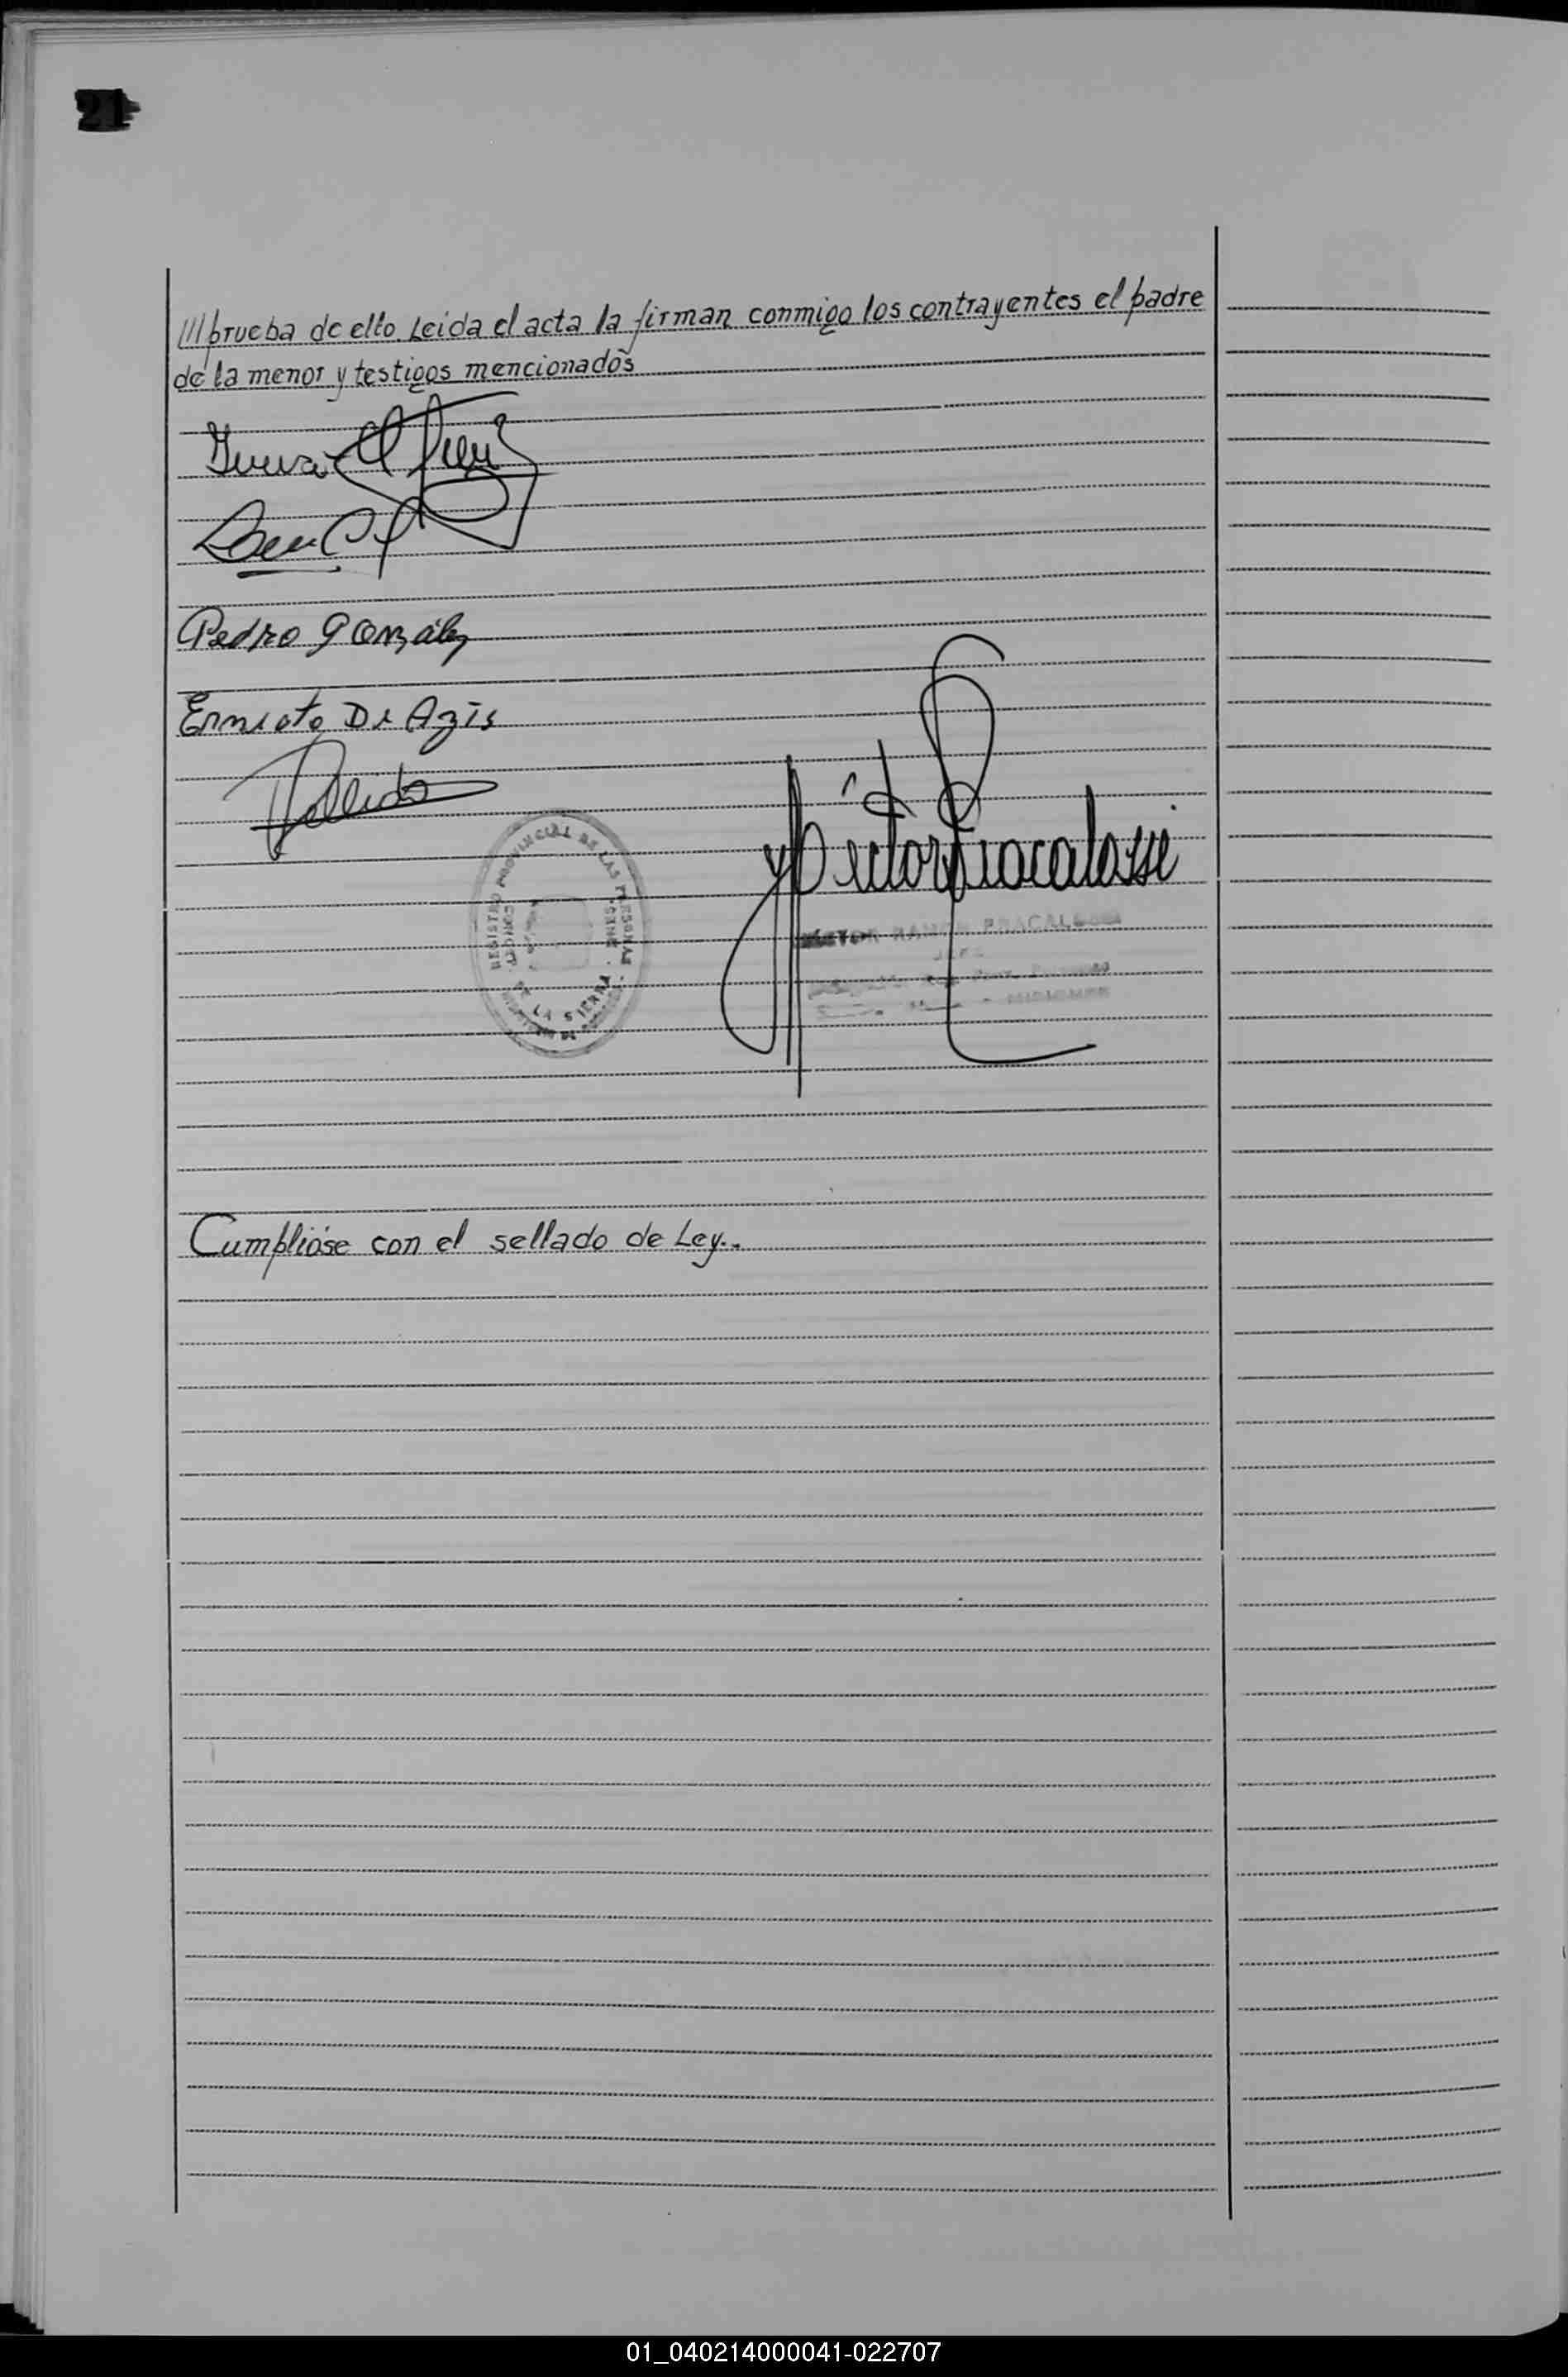 21
///prueba de ello. Leida el acta la firman conmigo los contrayentes el padre
de la menor y testigos mencionados
Pedro González
Ernesto De Azis
Hector Fracalossi
REGISTRO PROVINCIAL DE LAS PERSONAS
DE LA SIERRA
HECTOR RAMON FRACALOSSI
JEFE
Cumplióse con el sellado de Ley..
01_040214000041-022707